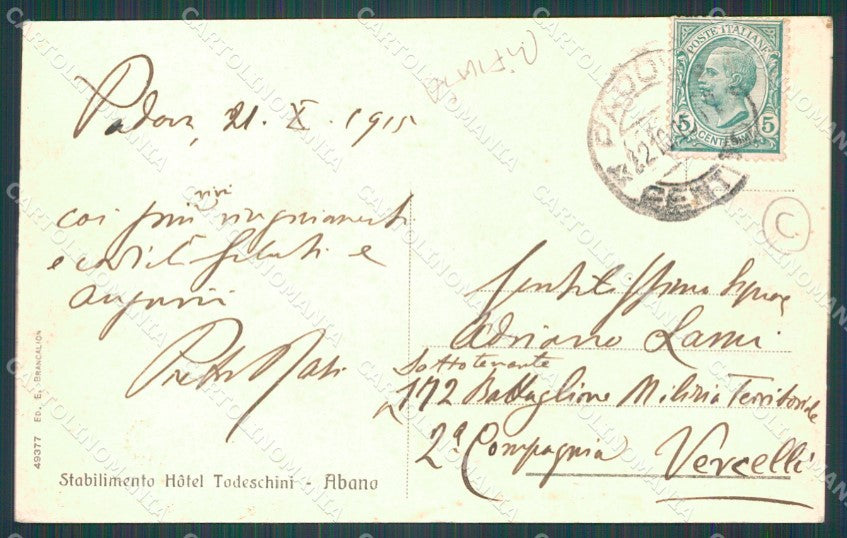 Padova, 21. X. 1915
coi più vivi ringraziamenti
e cordiali saluti e
auguri
POSTE ITALIANE
5 CENTESIMI 5
PADOVA
CENTR
C.
Gentilissimo Signor
Adriano Lami
Sottotenente
172 Battaglione Milizia Territoriale
2ª Compagnia Vercelli
49377 ED. E. BRANCALION
Stabilimento Hôtel Todeschini - Abano
CARTOLINOMANIA